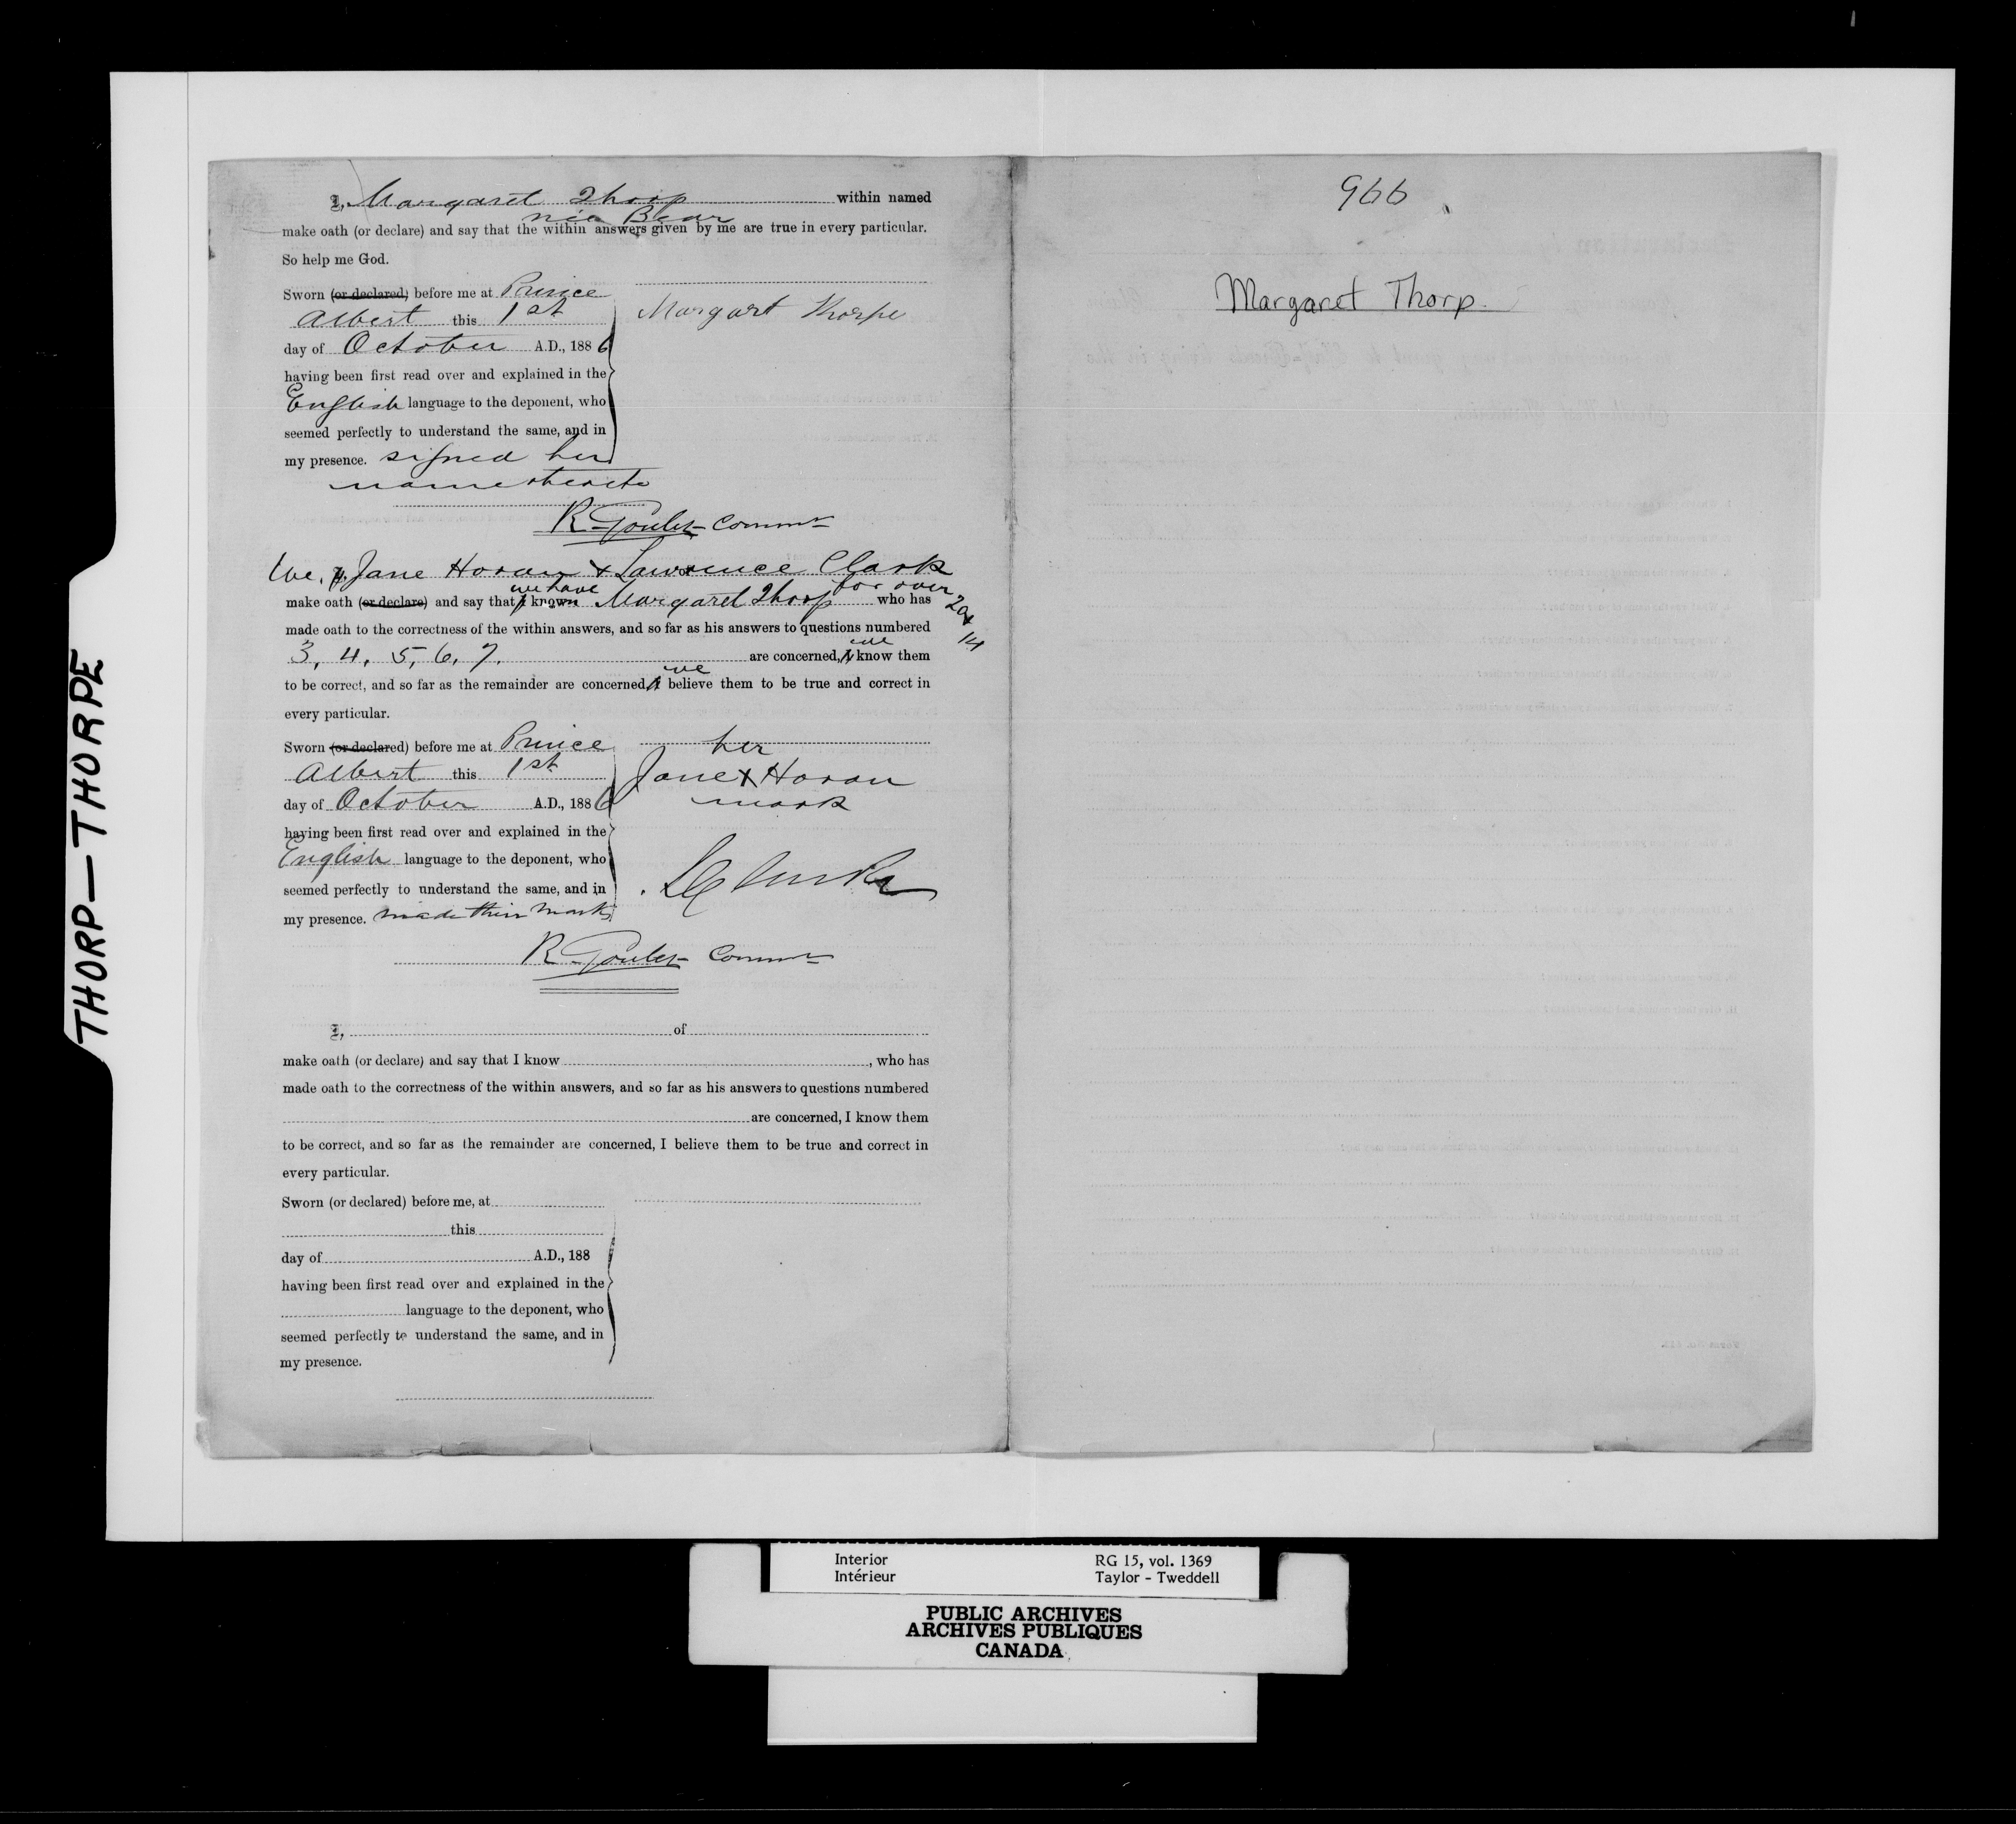 I, Margaret Thorp within named
née Bear
make oath (or declare) and say that the within answers given by me are true in every particular.
So help me God.
Sworn (or declared) before me at Prince
Albert this 1st
day of October A.D., 1886
having been first read over and explained in the
English language to the deponent, who
seemed perfectly to understand the same, and in
my presence. signed her
name thereto
Margart Thorpe
R Goulet Commr
We, I, Jane Horan & Lawrence Clark
we have for over 20 & 14
make oath (or declare) and say that I known Margaret Thorp who has
made oath to the correctness of the within answers, and so far as his answers to questions numbered
3, 4, 5, 6, 7. are concerned, I we know them
to be correct, and so far as the remainder are concerned, I we believe them to be true and correct in
every particular.
Sworn (or declared) before me at Prince
Albert this 1st
day of October A.D., 1886
having been first read over and explained in the
English language to the deponent, who
seemed perfectly to understand the same, and in
my presence. made their marks
her
Jane X Horan
mark
R Goulet Commr
I, of
make oath (or declare) and say that I know , who has
made oath to the correctness of the within answers, and so far as his answers to questions numbered
are concerned, I know them
to be correct, and so far as the remainder are concerned, I believe them to be true and correct in
every particular.
Sworn (or declared) before me, at
this
day of A.D., 188
having been first read over and explained in the
language to the deponent, who
seemed perfectly to understand the same, and in
my presence.
966
Margaret Thorp.
THORP—THORPE
Interior RG 15, vol. 1369
Intérieur Taylor - Tweddell
PUBLIC ARCHIVES
ARCHIVES PUBLIQUES
CANADA